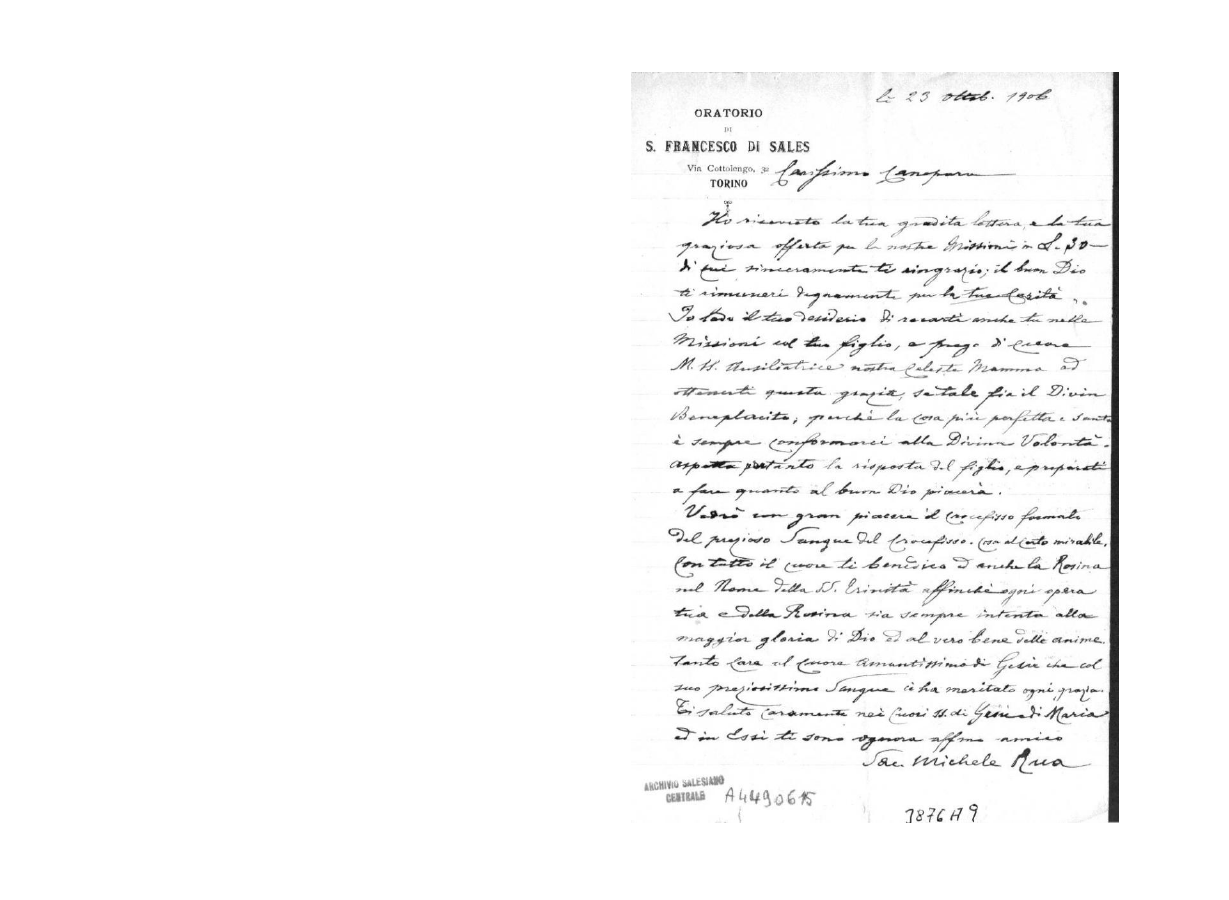 li 23 Ottob. 1906
ORATORIO
DI
S. FRANCESCO DI SALES
Via Cottolengo, 32
TORINO
Carissimo Canepara
Ho ricevuto la tua gradita lettera, e la tua
graziosa offerta per le nostre Missioni in L. 30—
di cui sinceramente ti ringrazio; il buon Dio
ti rimuneri degnamente per la tua Carità.
Io lodo il tuo desiderio di recarti anche tu nelle
Missioni col tuo figlio, e prego di cuore
M. SS. Ausiliatrice nostra Celeste Mamma ad
ottenerti questa grazia, se tale fia il Divin
Beneplacito; perchè la cosa più perfetta e santa
è sempre conformarci alla Divina Volontà.
Aspetta pertanto la risposta del figlio, e preparati
a fare quanto al buon Dio piacerà.
Vedrò con gran piacere il Crocefisso formato
del prezioso Sangue del Crocefisso. Cosa al certo mirabile.
Con tutto il cuore ti benedico ed anche la Rosina
nel Nome della SS. Trinità affinchè ogni opera
tua e della Rosina sia sempre intenta alla
maggior gloria di Dio ed al vero bene delle anime
tanto care al Cuore Amantissimo di Gesù che col
suo preziosissimo Sangue ci ha meritato ogni grazia.
Ti saluto caramente nei Cuori SS. di Gesù e di Maria
ed in Essi ti sono ognora affmo amico
Sac. Michele Rua
ARCHIVIO SALESIANO
CENTRALE
A4490615
3876A9